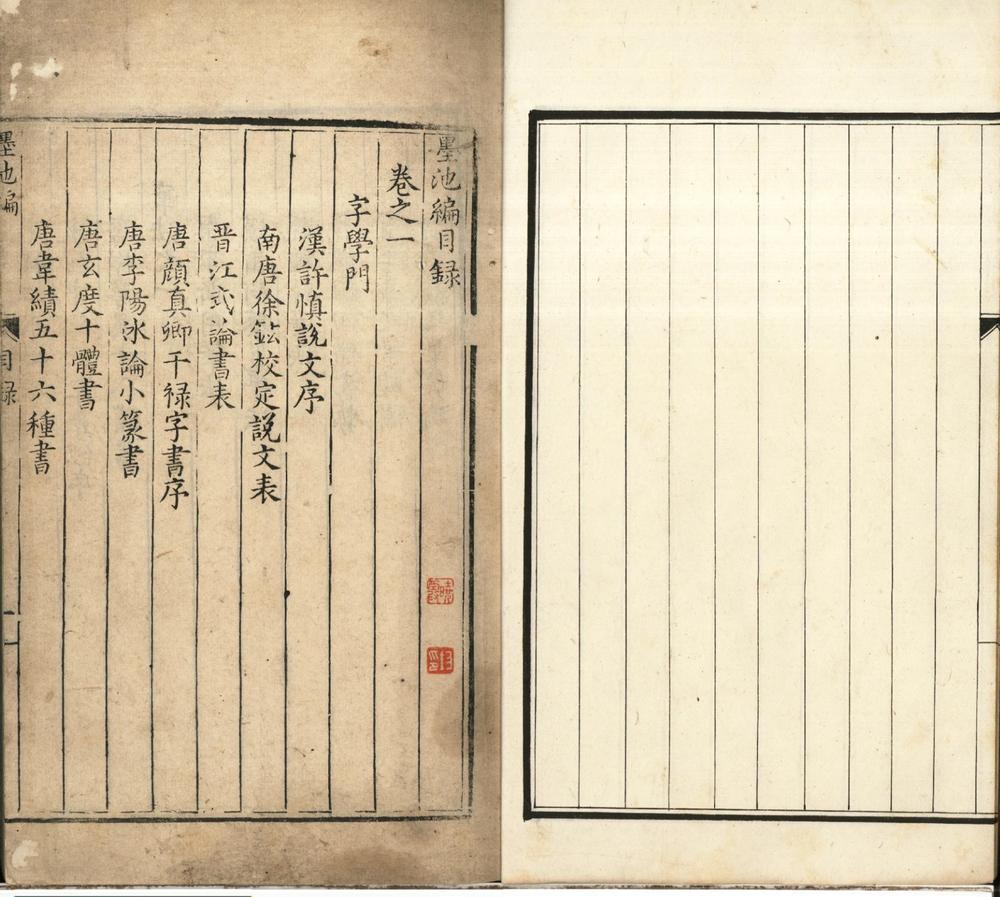 墨池編目録
卷之一
字學門
漢許慎說文序
南唐徐鉉校定說文表
晉江式論書表
唐顔真卿干禄字書序
唐李陽冰論小篆書
唐玄度十體書
唐韋績五十六種書
墨池編
目録
一